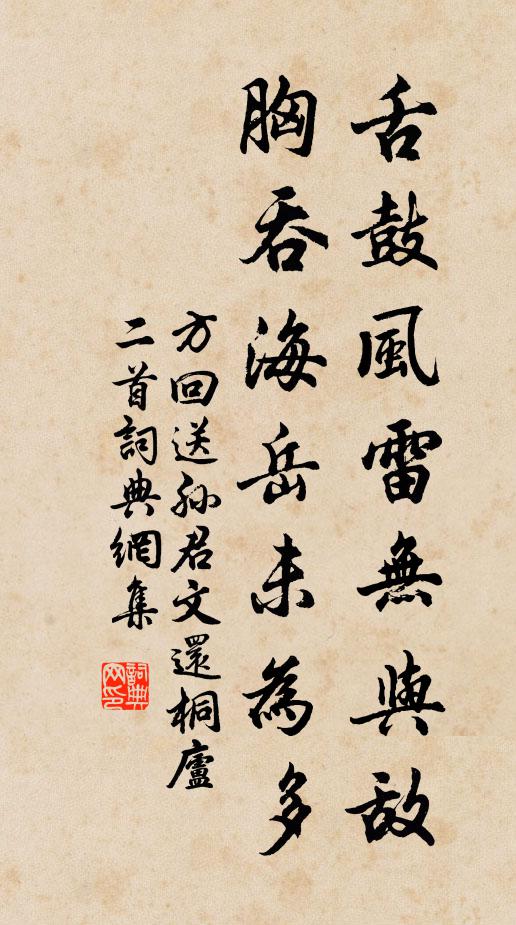 舌鼓風雷無與敵
胸吞海岳未為多
方回送孙君文還桐廬
二首詞典網集
詞典网印